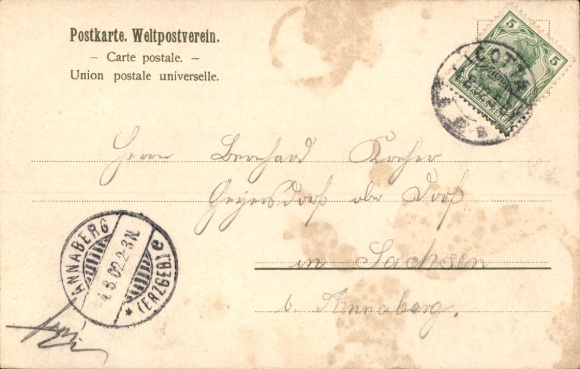 Postkarte. Weltpostverein.
– Carte postale. –
Union postale universelle.
5 5
GOTHA
Herrn Bernhard Karcher
Geyersdorf ober Dorf
in Sachsen
b. Annaberg.
ANNABERG
4.8.02.2-3N.
* (ERZGEB.) e